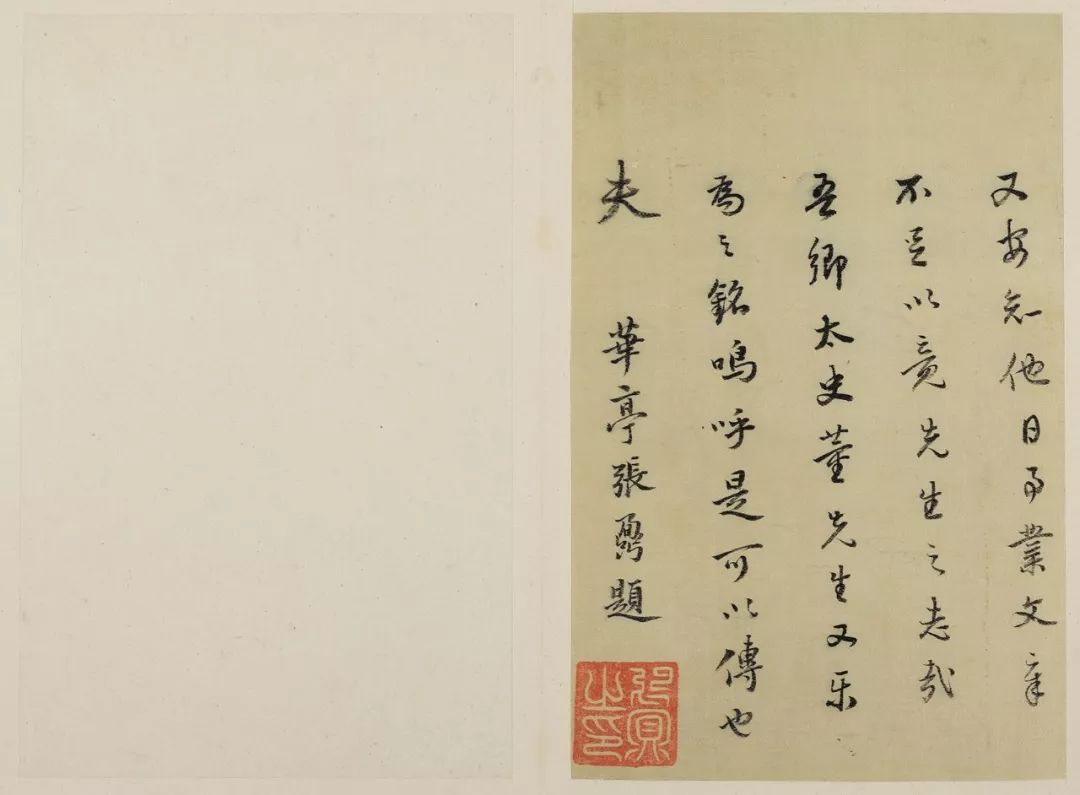 又安知他日事業文章
不足以竟先生之志哉
吾鄉太史董先生又乐
為之銘嗚呼是可以傳也
夫 華亭張鼐題
之印